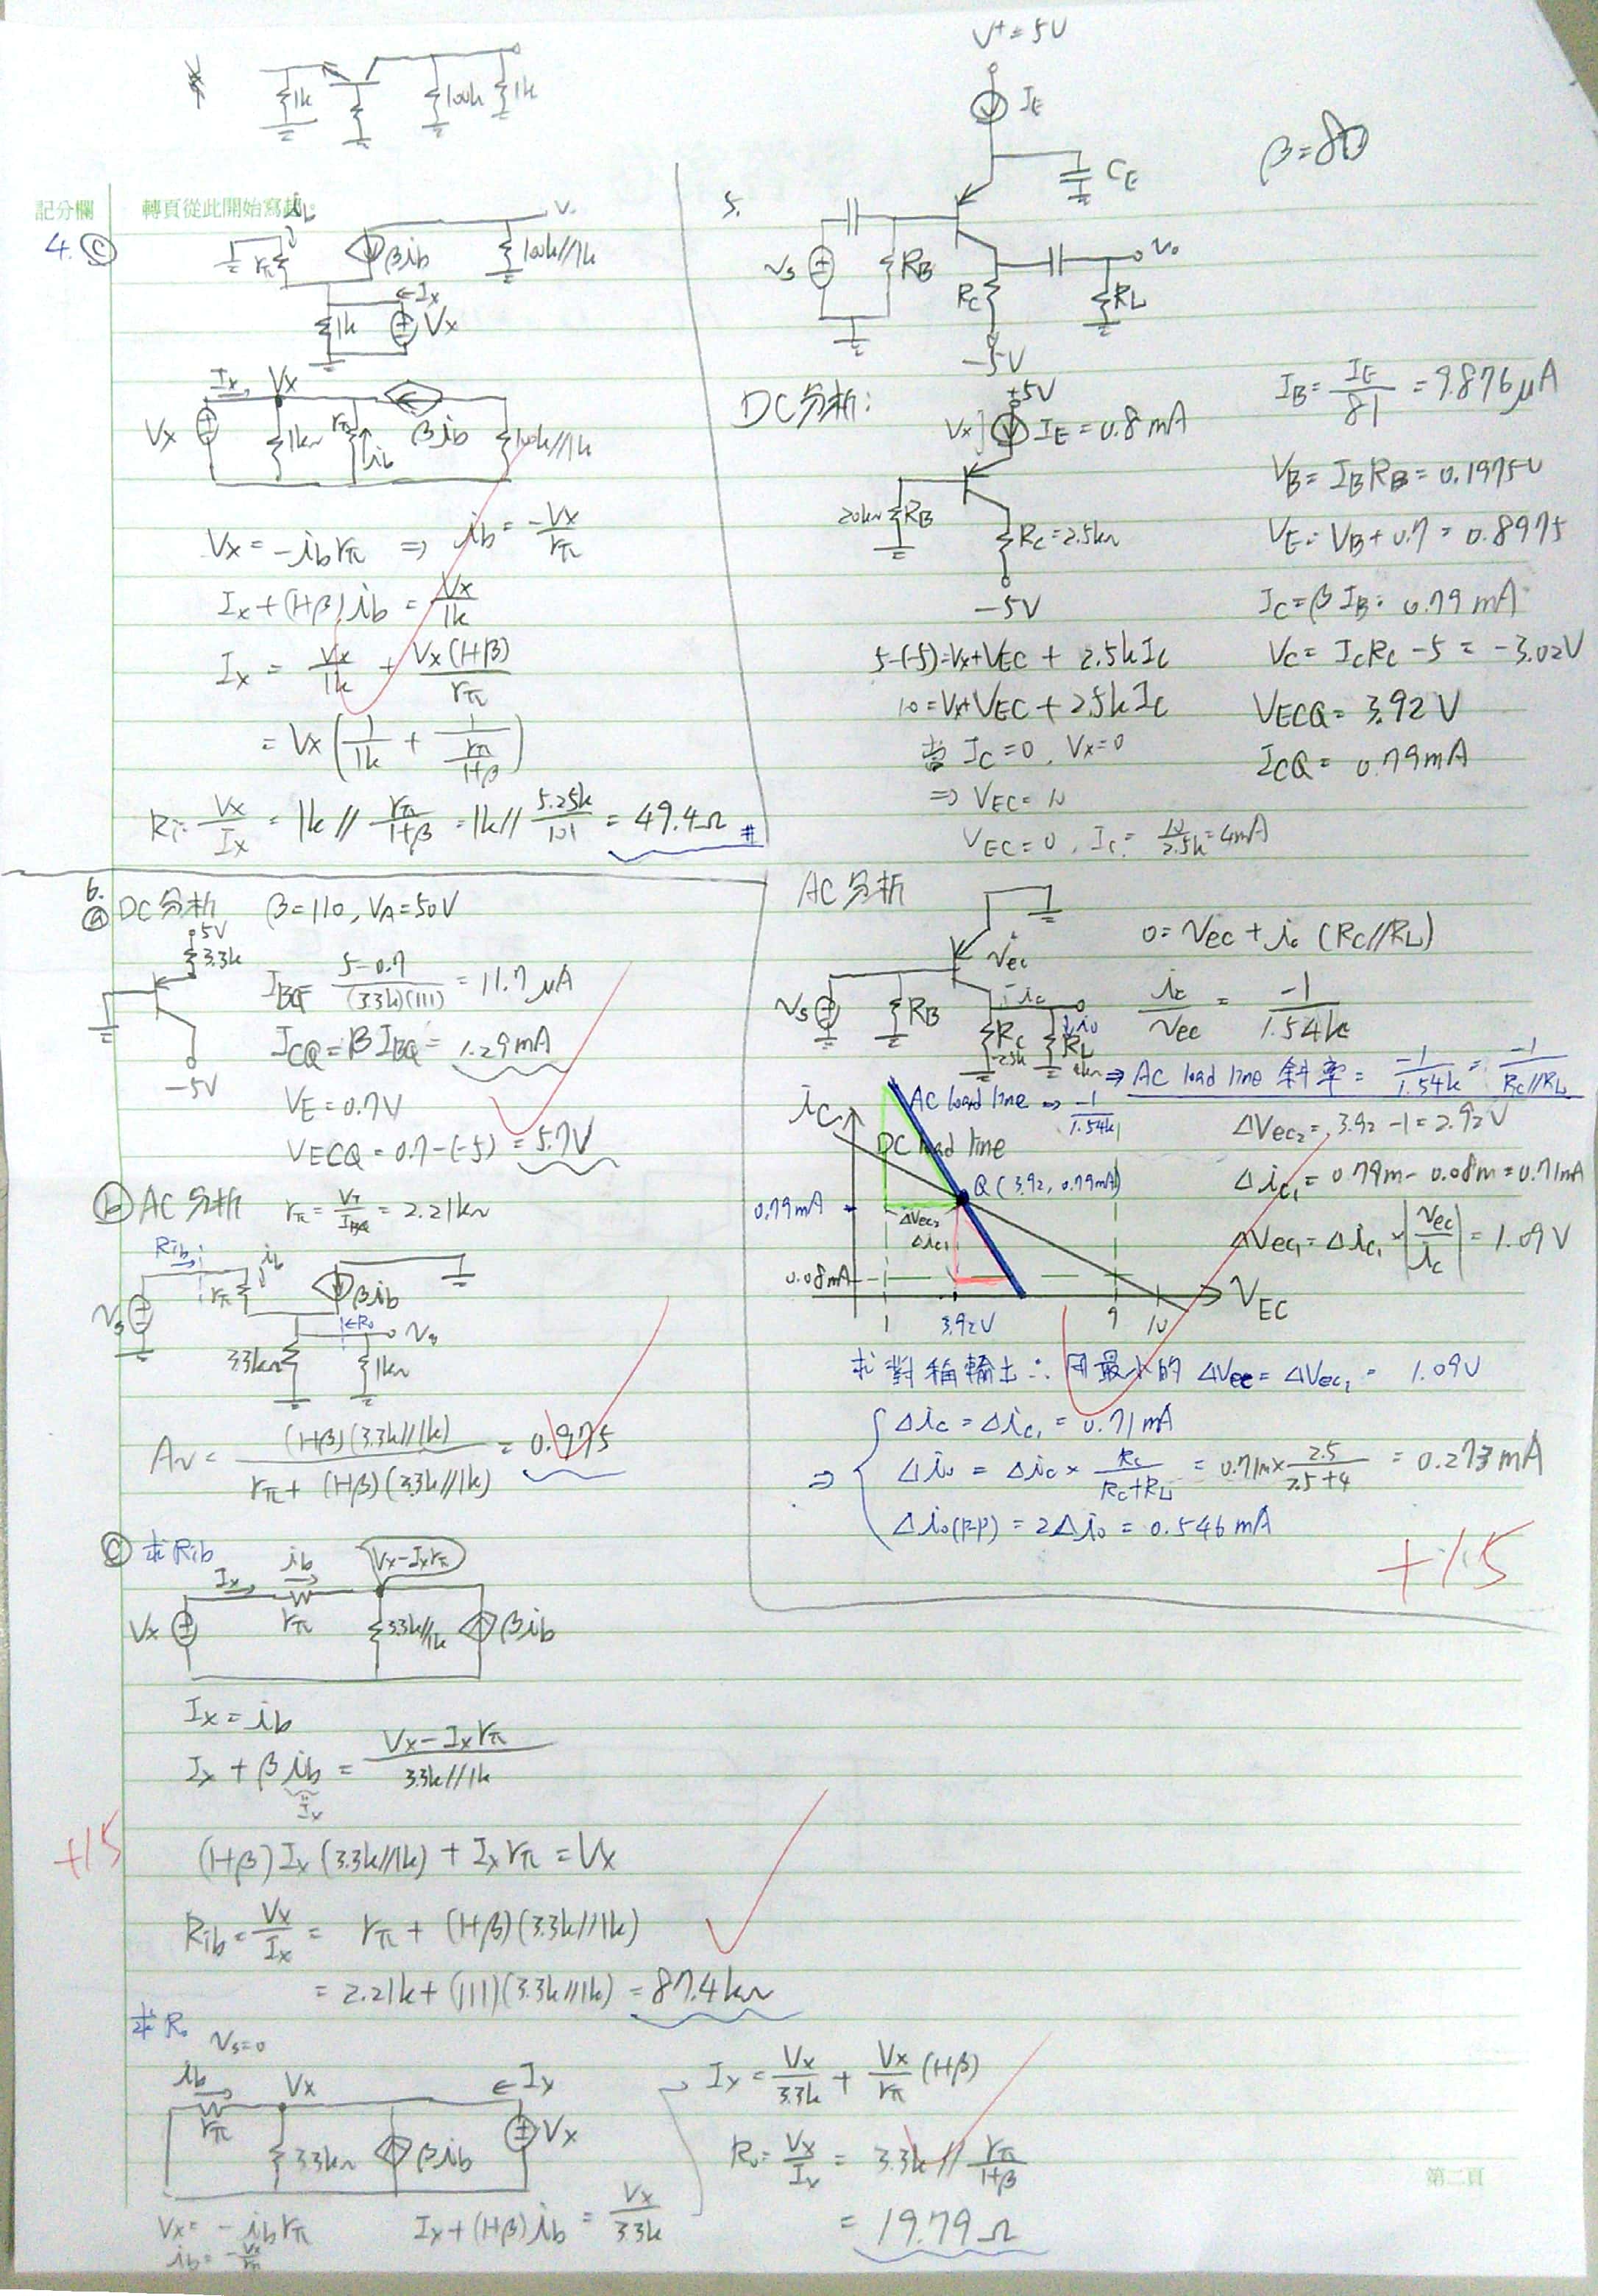 1k
100k
1k
V⁺=5V
I_E
C_E
β=80
記分欄
轉頁從此開始寫起。
4. ⓒ
i_b
r_π
βi_b
100k//1k
←I_x
1k
V_x
I_x
V_x
V_x
1kΩ
r_π
i_b
βi_b
100k//1k
V_x = -i_b r_π ⇒ i_b = -V_x/r_π
I_x + (1+β)i_b = V_x/1k
I_x = V_x/1k + V_x(1+β)/r_π
= V_x(1/1k + 1/(r_π/(1+β)))
R_i = V_x/I_x = 1k // r_π/(1+β) = 1k // 5.25k/101 = 49.4Ω #
5.
v_s
R_B
R_C
v_o
R_L
-5V
DC分析:
+5V
V_x
I_E = 0.8mA
20kΩ
R_B
R_C = 2.5kΩ
-5V
5-(-5) = V_x + V_EC + 2.5k I_C
10 = V_x + V_EC + 2.5k I_C
當 I_C = 0, V_x = 0
⇒ V_EC = 10
V_EC = 0, I_C = 10/2.5k = 4mA
I_B = I_E/81 = 9.876μA
V_B = I_B R_B = 0.1975V
V_E = V_B + 0.7 = 0.8975
I_C = βI_B = 0.79mA
V_C = I_C R_C - 5 = -3.02V
V_ECQ = 3.92V
I_CQ = 0.79mA
AC分析
v_s
R_B
v_ec
i_c
R_C
2.5k
i_o
R_L
4kΩ
0 = v_ec + i_c (R_C//R_L)
i_c/v_ec = -1/1.54k
⇒ AC load line 斜率 = -1/1.54k = -1/(R_C//R_L)
i_C
AC load line ⇒ -1/1.54k
DC load line
Q(3.92, 0.79mA)
0.79mA
Δv_ec2
Δi_c1
0.08mA
1
3.92V
9
10
V_EC
Δv_ec2 = 3.92 - 1 = 2.92V
Δi_c1 = 0.79m - 0.08m = 0.71mA
Δv_ec1 = Δi_c1 × |v_ec/i_c| = 1.09V
求對稱輸出 ∴ 用最小的 Δv_ec = Δv_ec1 = 1.09V
⇒ { Δi_c = Δi_c1 = 0.71mA
Δi_o = Δi_c × R_C/(R_C+R_L) = 0.71m × 2.5/(2.5+4) = 0.273mA
Δi_o(p-p) = 2Δi_o = 0.546mA
+15
6.
ⓐ DC分析 β=110, V_A=50V
5V
3.3k
-5V
I_BQ = (5-0.7)/((3.3k)(111)) = 11.7μA
I_CQ = βI_BQ = 1.29mA
V_E = 0.7V
V_ECQ = 0.7-(-5) = 5.7V
ⓑ AC分析 r_π = V_T/I_BQ = 2.21kΩ
R_ib
i_b
r_π
βi_b
v_s
←R_o
v_o
3.3kΩ
1kΩ
A_v = (1+β)(3.3k//1k)/(r_π + (1+β)(3.3k//1k)) = 0.975
ⓒ 求R_ib
I_x
i_b
V_x - I_x r_π
V_x
r_π
3.3k//1k
βi_b
I_x = i_b
I_x + βi_b = (V_x - I_x r_π)/(3.3k//1k)
I_x
+15
(1+β)I_x(3.3k//1k) + I_x r_π = V_x
R_ib = V_x/I_x = r_π + (1+β)(3.3k//1k)
= 2.21k + (111)(3.3k//1k) = 87.4kΩ
求R_o
v_s=0
i_b
V_x
←I_x
r_π
3.3kΩ
βi_b
V_x
V_x = -i_b r_π
i_b = -V_x/r_π
I_x + (1+β)i_b = V_x/3.3k
I_x = V_x/3.3k + V_x/r_π (1+β)
R_o = V_x/I_x = 3.3k // r_π/(1+β)
= 19.79Ω
第二頁